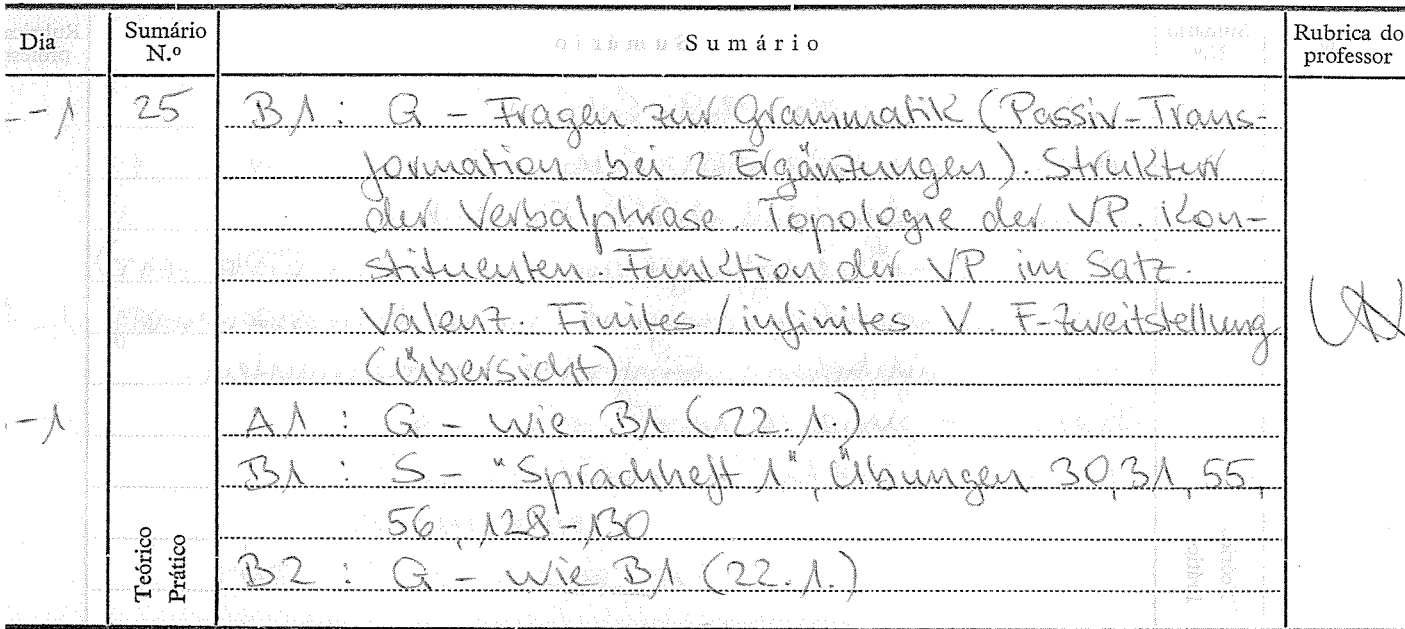 Dia
Sumário N.º
Sumário
Rubrica do professor
--1 25 B1: G - Fragen zur Grammatik (Passiv-Trans-
formation bei 2 Ergänzungen). Struktur
der Verbalphrase. Topologie der VP. Kon-
stituenten. Funktion der VP im Satz.
Valenz. Finites/infinites V. F-Zweitstellung
(Übersicht)
-1 A1: G - wie B1 (22.1.)
B1: S - "Sprachheft 1", Übungen 30, 31, 55,
56, 128-130
B2: G - wie B1 (22.1.)
Teórico
Prático